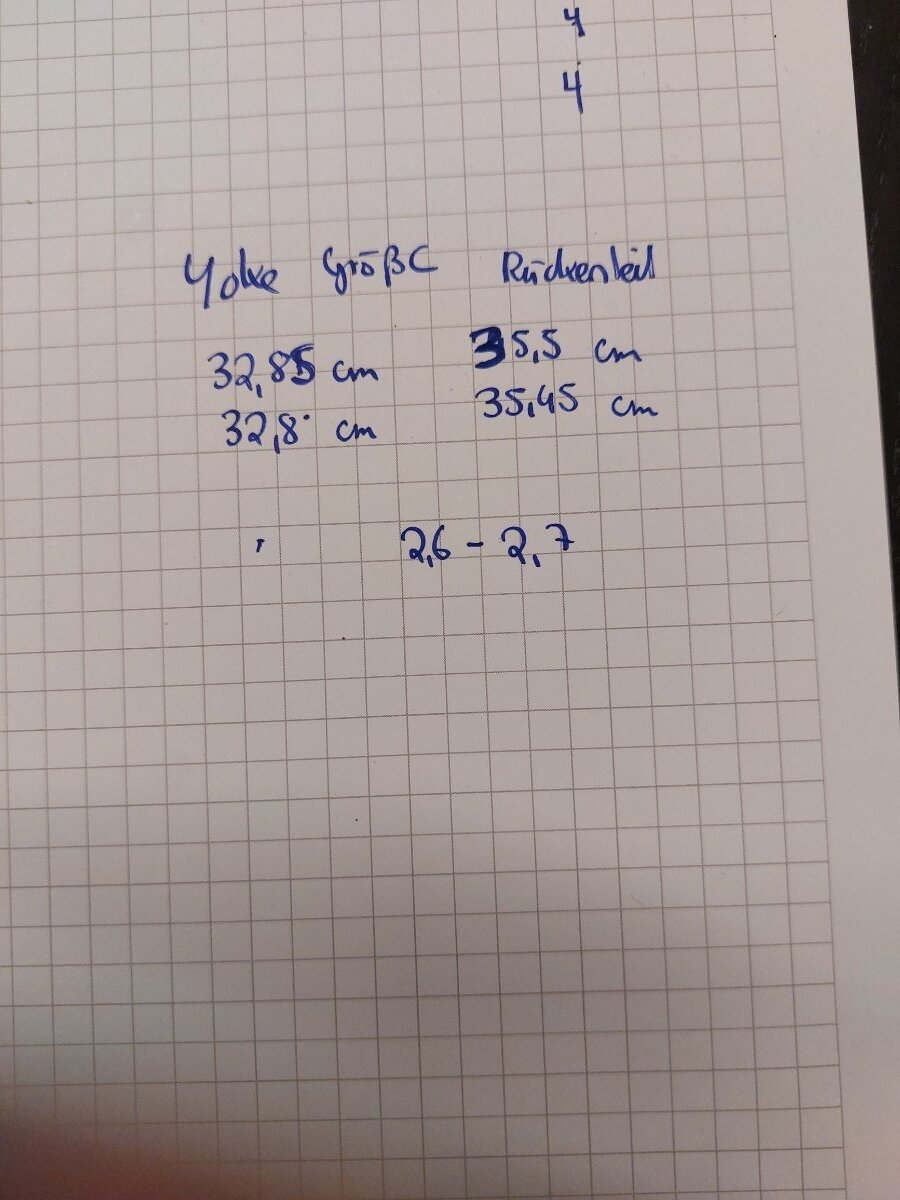 4
4
Yoke Größe Rückenteil
32,85 cm 35,5 cm
32,8 cm 35,45 cm
2,6 - 2,7